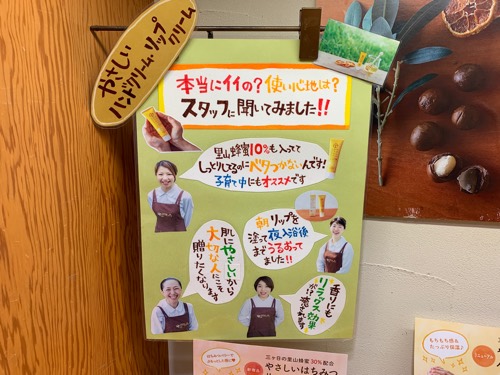 やさしい
ハンドクリーム・リップ
クリーム
本当にイイの？使い心地は？
スタッフに聞いてみました!!
里山蜂蜜10%も入って
しっとりしてるのにベタつかないんです!
子育て中にもオススメです
朝リップを
塗って夜入浴後
までうるおって
ました!!
肌にやさしいから
大切な人にこそ
贈りたくなります
香りにも
リラックス効果
が!?癒されます
三ヶ日の里山蜂蜜30%配合
やさしいはちみつ
もちもち感&
たっぷり保湿♪